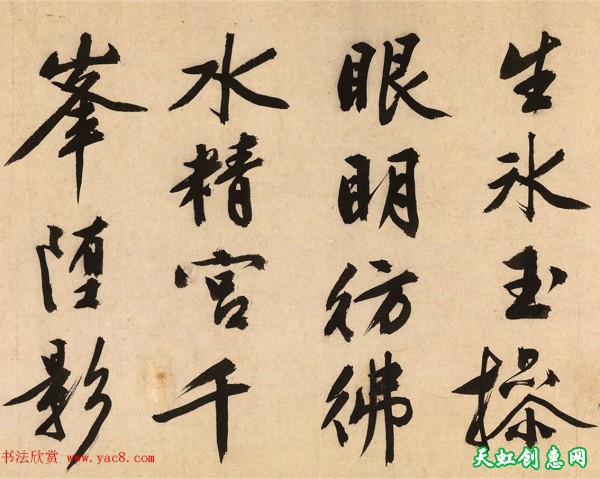 生冰玉操
眼明彷彿
水精宫千
峯堕影
书法欣赏 www.yac8.com
天虹创惠网